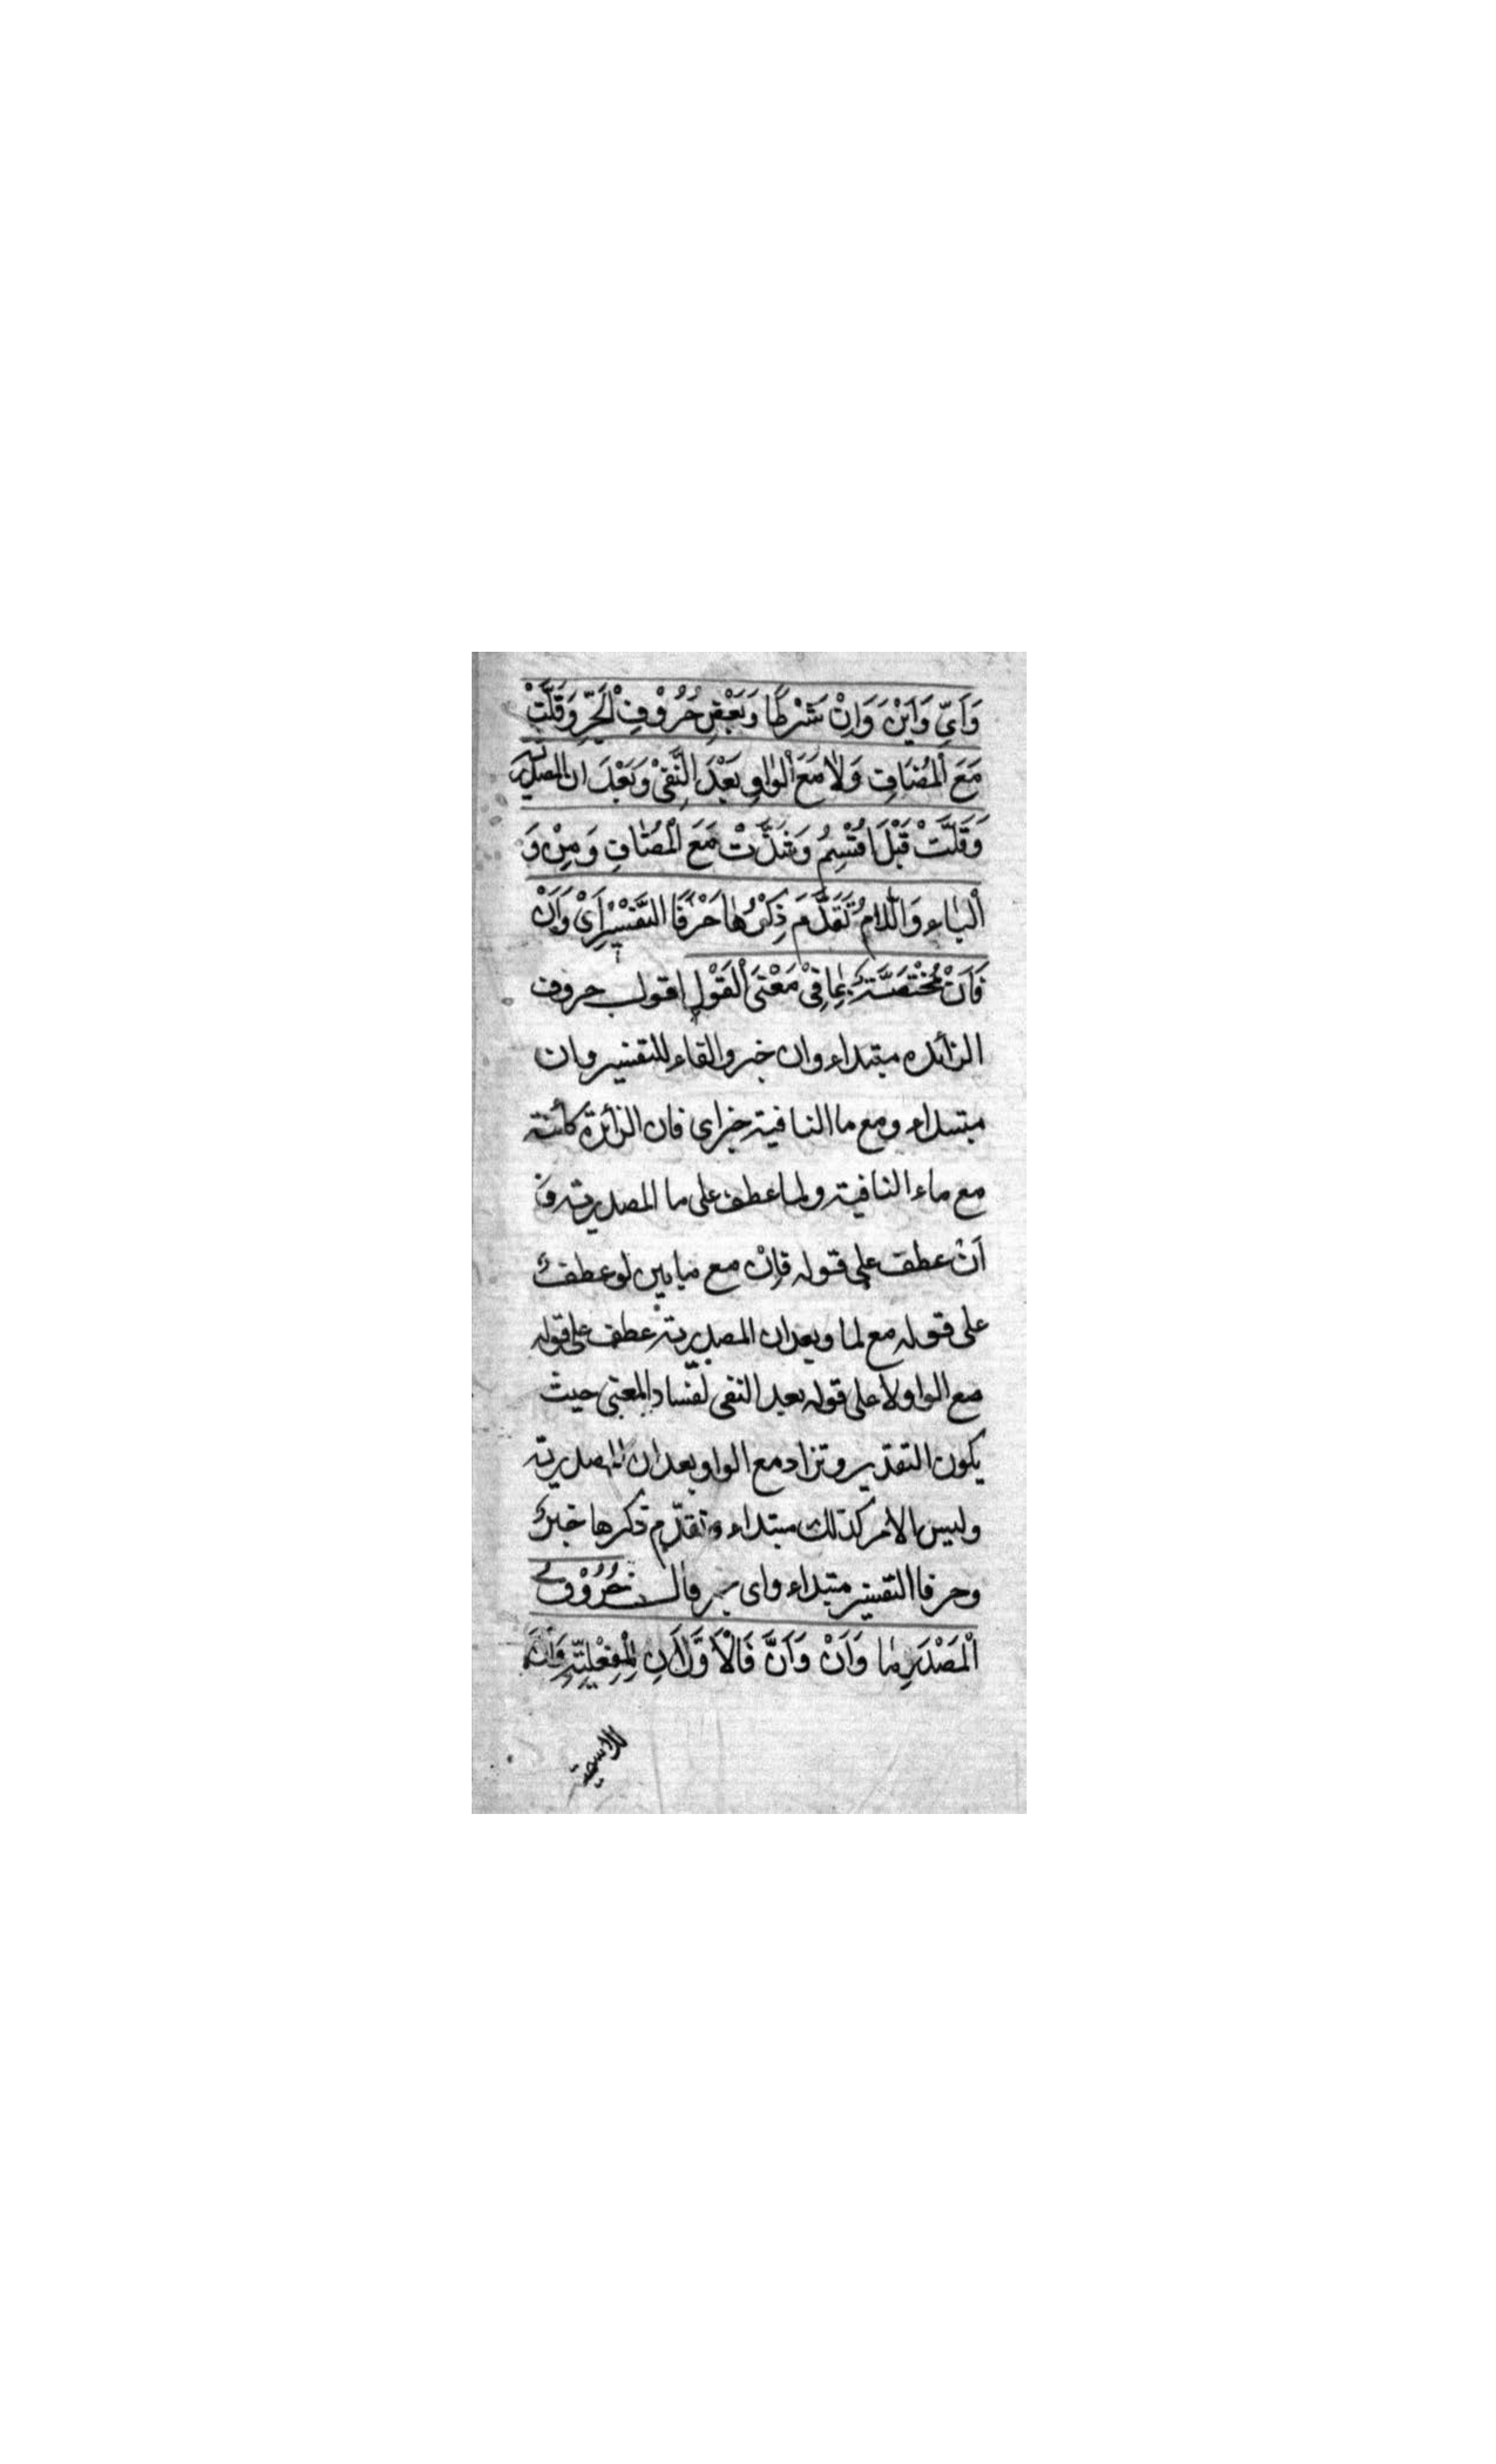 وَاَيِّ وَاَيْنَ وَاِنْ شَرْطًا وَبَعْضِ حُرُوْفِ الْجَرِّ وَقَلَّتْ
مَعَ الْمُضَافِ وَلَا مَعَ الْوَاوِ بَعْدَ النَّفْيِ وَبَعْدَ ان المصدرية
وَقَلَّتْ قَبْلَ اُقْسِمُ وَشَذَّتْ مَعَ الْمُضَافِ وَمِنْ وَ
الْبَاءِ وَاللَّامُ تَقَدَّمَ ذِكْرُهَا حَرْفَا التَّفْسِيْرِ اَيْ وَاَنْ
فَاَنْ مُخْتَصَّةٌ بِمَا فِيْ مَعْنَى الْقَوْلِ اقول حروف
الزائده مبتداء وان خبر والفاء للتفسير وان
مبتداء ومع ما النافية خبر اى فان الزائدة كائنة
مع ماء النافية ولما عطف على ما المصدرية و
اَنْ عطف على قوله فاِنْ مع ما بين لو عطف
على قوله مع لما وبعد ان المصدرية عطف على قوله
مع الواو لا على قوله بعد النفى لفساد المعنى حيث
يكون التقدير وتزاد مع الواو بعد ان المصدرية
وليس الامر كذلك مبتداء وتقدّم ذكرها خبره
وحرفا التفسير مبتداء واى قال حُرُوْفُ
الْمَصْدَرِ مَا وَاَنْ وَاَنَّ فَالْاَوَّلَانِ لِلْفِعْلِيَّةِ وَاَنَّ
للاسمية